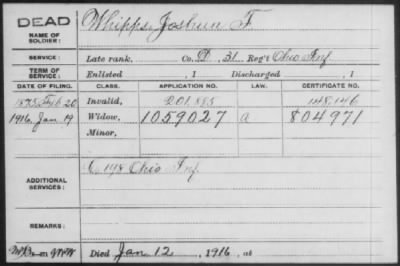 DEAD Whipps, Joshua F.
NAME OF SOLDIER:
SERVICE: Late rank, Co. D, 31 Reg't Ohio Inf.
TERM OF SERVICE: Enlisted , 1 Discharged , 1
DATE OF FILING. CLASS. APPLICATION NO. LAW. CERTIFICATE NO.
1875 Feb 20 Invalid, 201.885 148.146
1916, Jan 19 Widow, 1059027 a 804971
Minor,
ADDITIONAL SERVICES: C 198 Ohio Inf.
REMARKS:
Died Jan 12, 1916, at